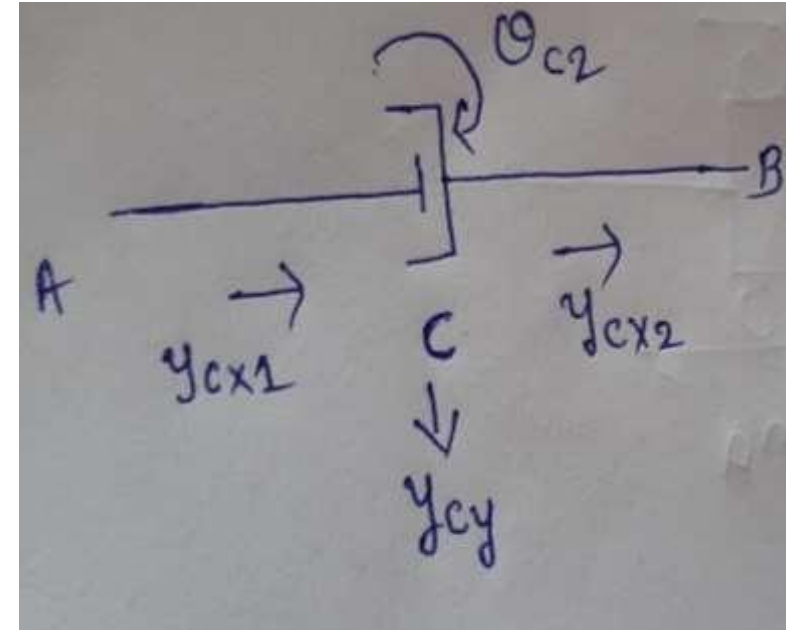 θc2
B
A
ycx1
C
ycx2
ycy